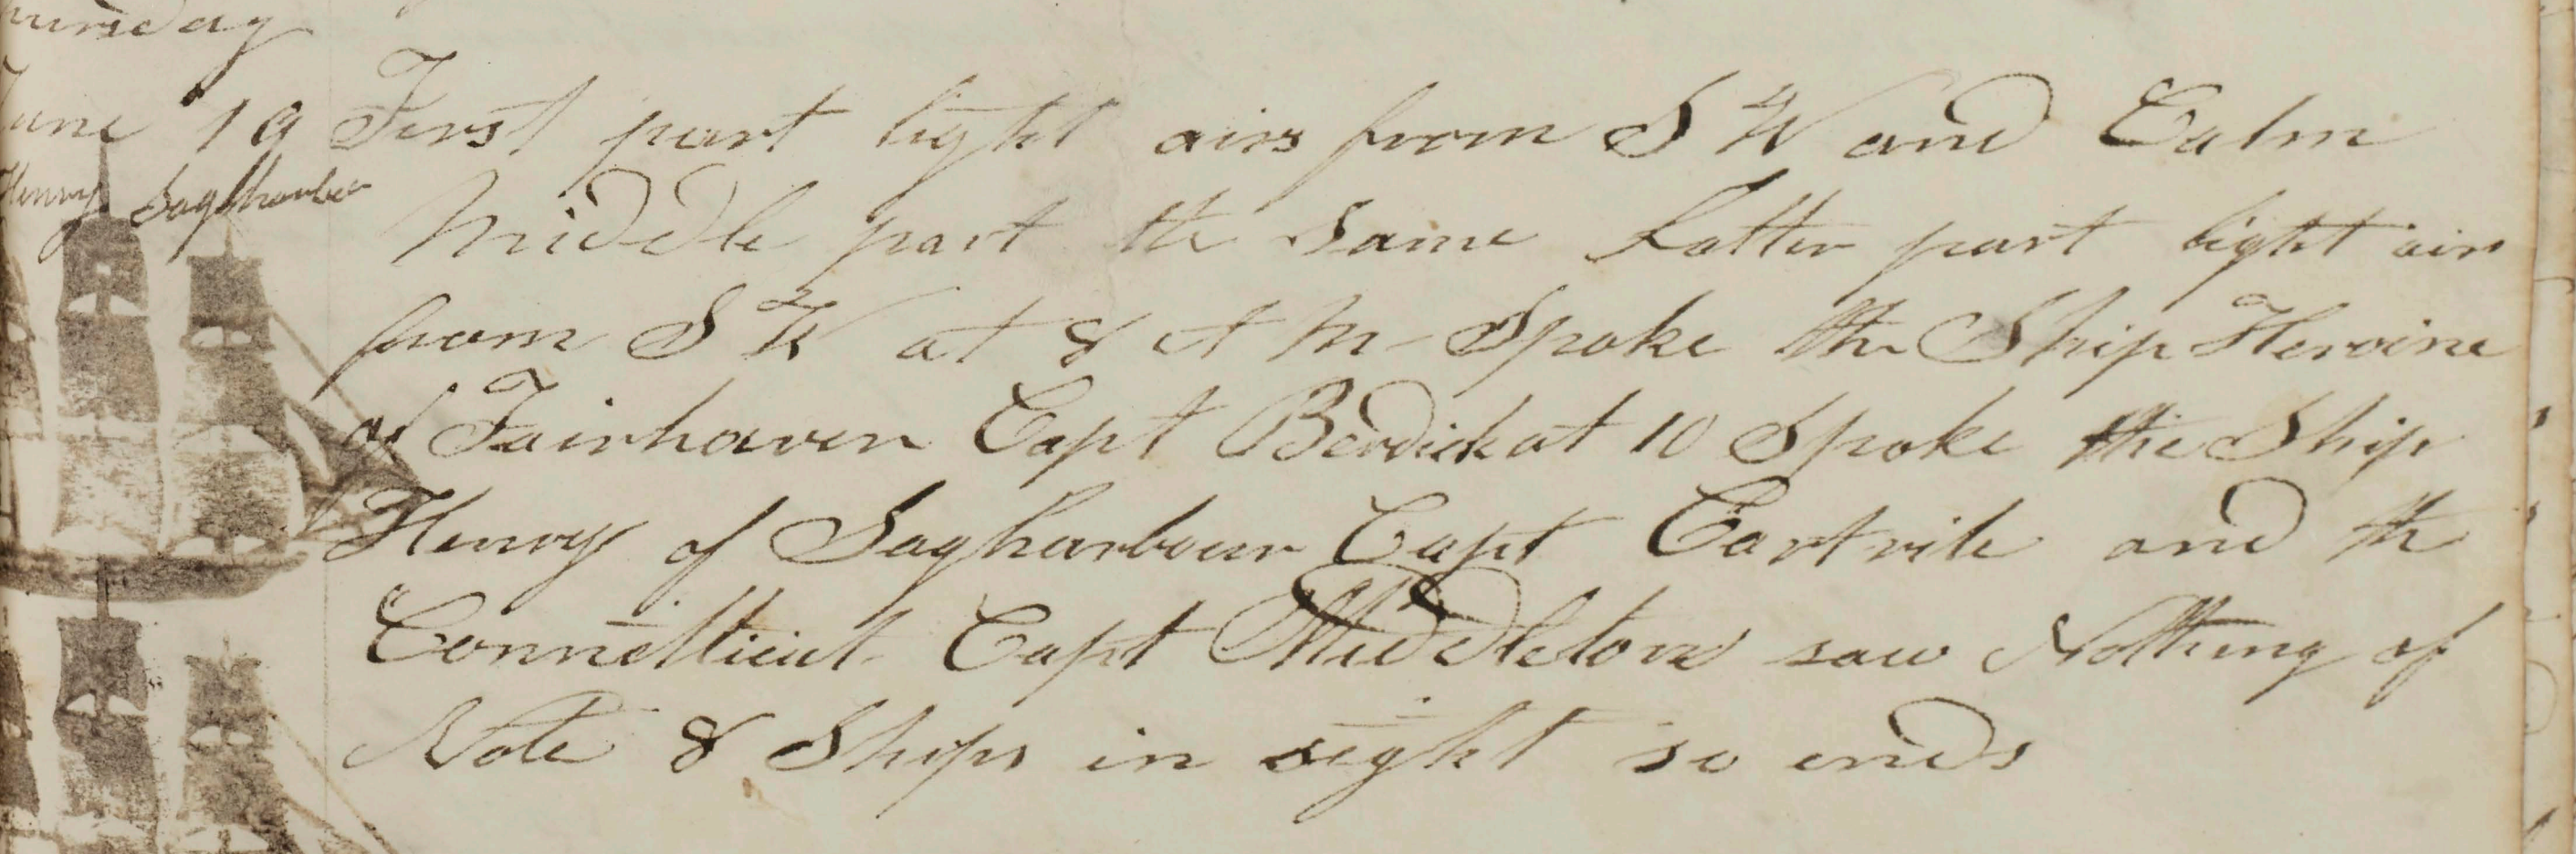 Thursday
June 19 First part light airs from S W and Calm
Henry Sagharbor
Middle part the Same Latter part light airs
from S W at 8 A M - Spoke the Ship Heroine
of Fairhaven Capt Berdick at 10 Spoke the Ship
Henry of Sagharbour Capt Cartrile and th
Connetticut Capt Middleton saw Nothing of
Note 8 Ships in sight so ends